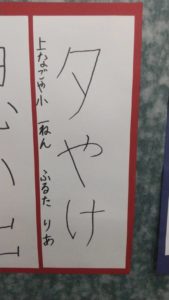 夕やけ
上なごや小 一ねん ふるた りあ